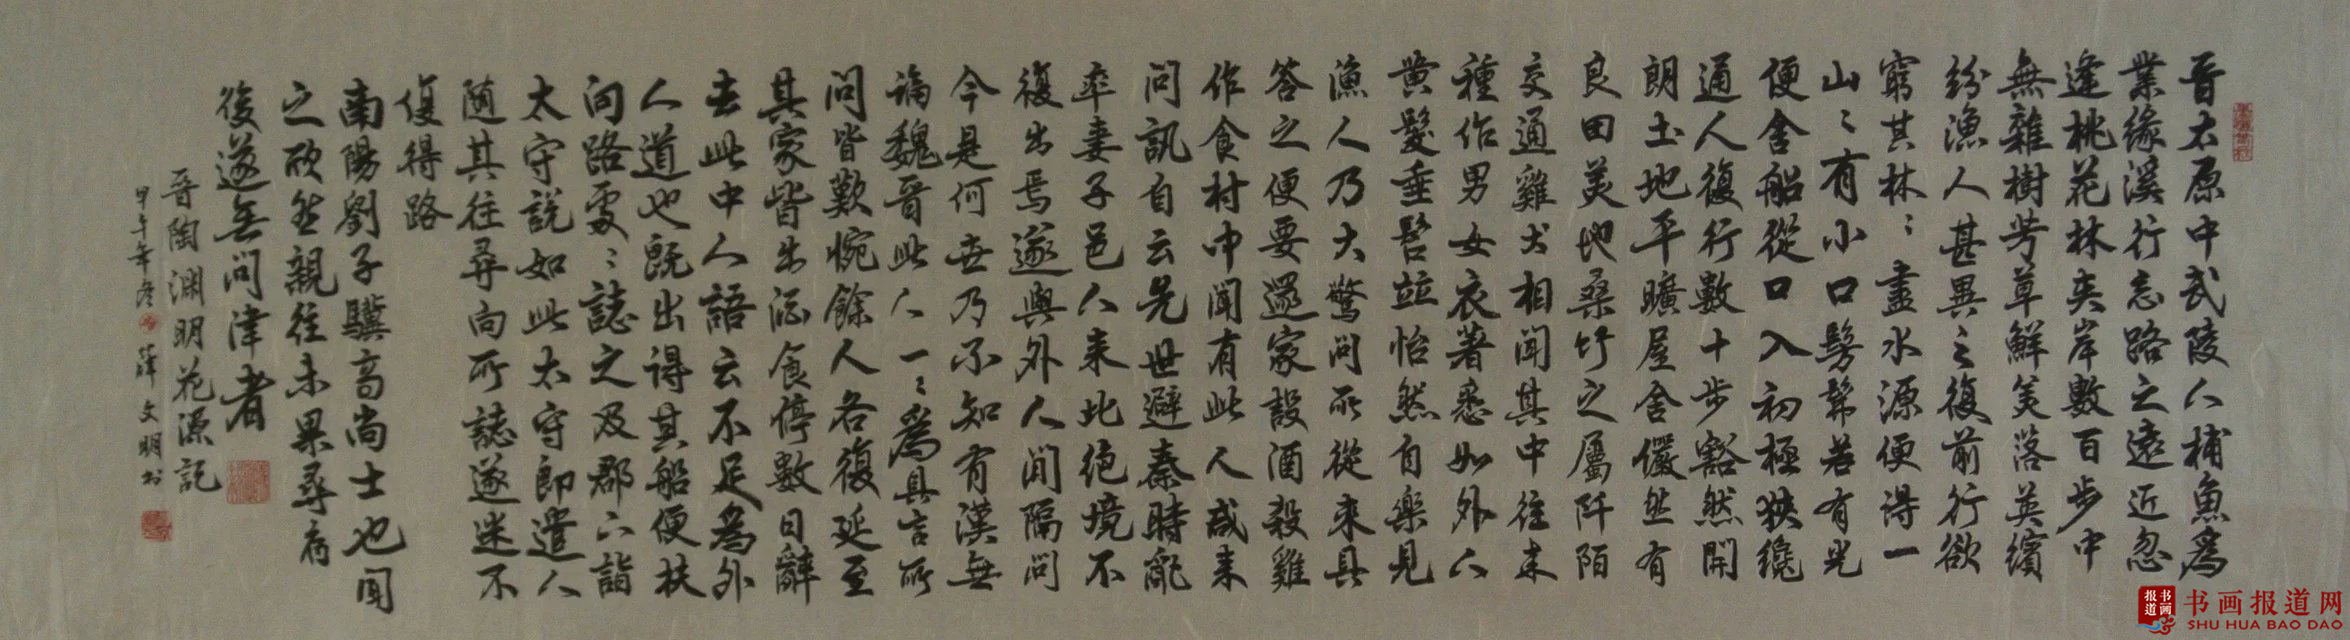 晉太原中武陵人捕魚為
業緣溪行忘路之遠近忽
逢桃花林夾岸數百步中
無雜樹芳草鮮美落英繽
紛漁人甚異之復前行欲
窮其林〻盡水源便得一
山〻有小口髣髴若有光
便舍船從口入初極狹纔
通人復行數十步豁然開
朗土地平曠屋舍儼然有
良田美地桑竹之屬阡陌
交通雞犬相聞其中往来
種作男女衣著悉如外人
黃髮垂髫並怡然自樂見
漁人乃大驚問所從来具
答之便要還家設酒殺雞
作食村中聞有此人咸来
問訊自云先世避秦時亂
率妻子邑人来此絕境不
復出焉遂與外人间隔问
今是何世乃不知有漢無
論魏晉此人一〻為具言所
問皆歎惋餘人各復延至
其家皆出酒食停數日辭
去此中人語云不足為外
人道也既出得其船便扶
向路處〻誌之及郡下詣
太守説如此太守即遣人
随其往尋向所誌遂迷不
復得路
南陽劉子驥高尚士也聞
之欣然親往未果尋病
後遂無問津者
晉陶淵明花源記
甲午年冬 薛文明书
书画报道
书画报道网
SHU HUA BAO DAO